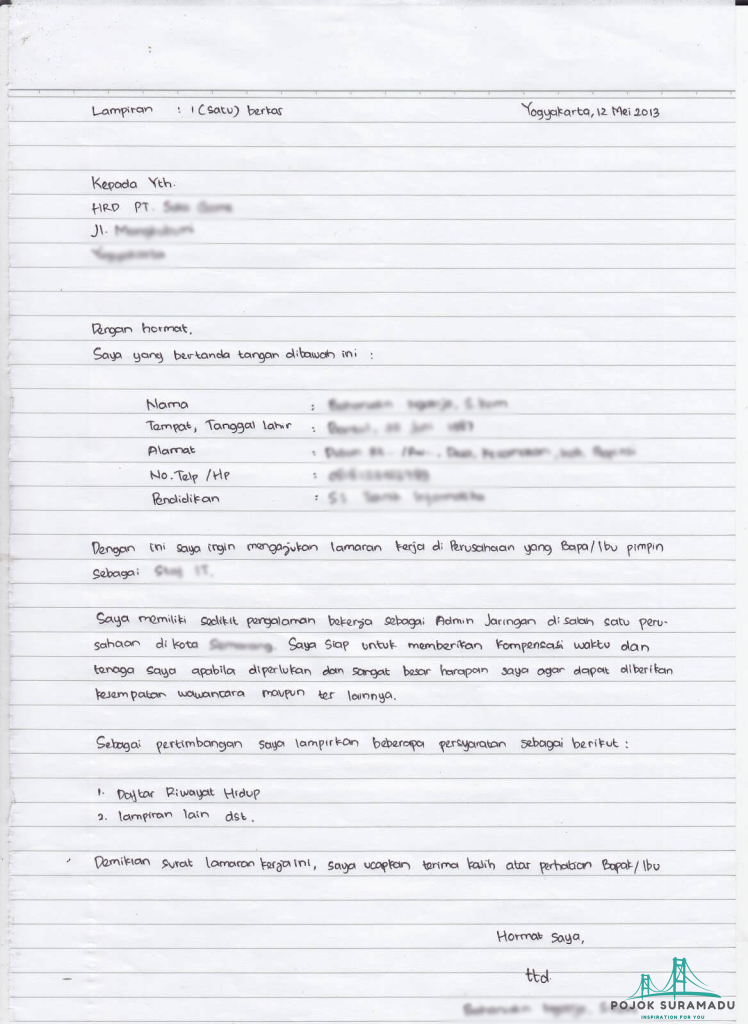 Lampiran : 1 (satu) berkas Yogyakarta, 12 Mei 2013
Kepada Yth.
HRD PT.
Jl.
Dengan hormat,
Saya yang bertanda tangan dibawah ini :
Nama :
Tempat, Tanggal lahir :
Alamat :
No. Telp / Hp :
Pendidikan :
Dengan ini saya ingin mengajukan lamaran kerja di Perusahaan yang Bapa/Ibu pimpin
sebagai
Saya memiliki sedikit pengalaman bekerja sebagai Admin Jaringan di salah satu peru-
sahaan di kota Saya siap untuk memberikan kompensasi waktu dan
tenaga saya apabila diperlukan dan sangat besar harapan saya agar dapat diberikan
kesempatan wawancara maupun tes lainnya.
Sebagai pertimbangan saya lampirkan beberapa persyaratan sebagai berikut :
1. Daftar Riwayat Hidup
2. lampiran lain dst.
Demikian surat lamaran kerja ini, saya ucapkan terima kasih atas perhatian Bapak/Ibu
Hormat saya,
ttd
POJOK SURAMADU
INSPIRATION FOR YOU